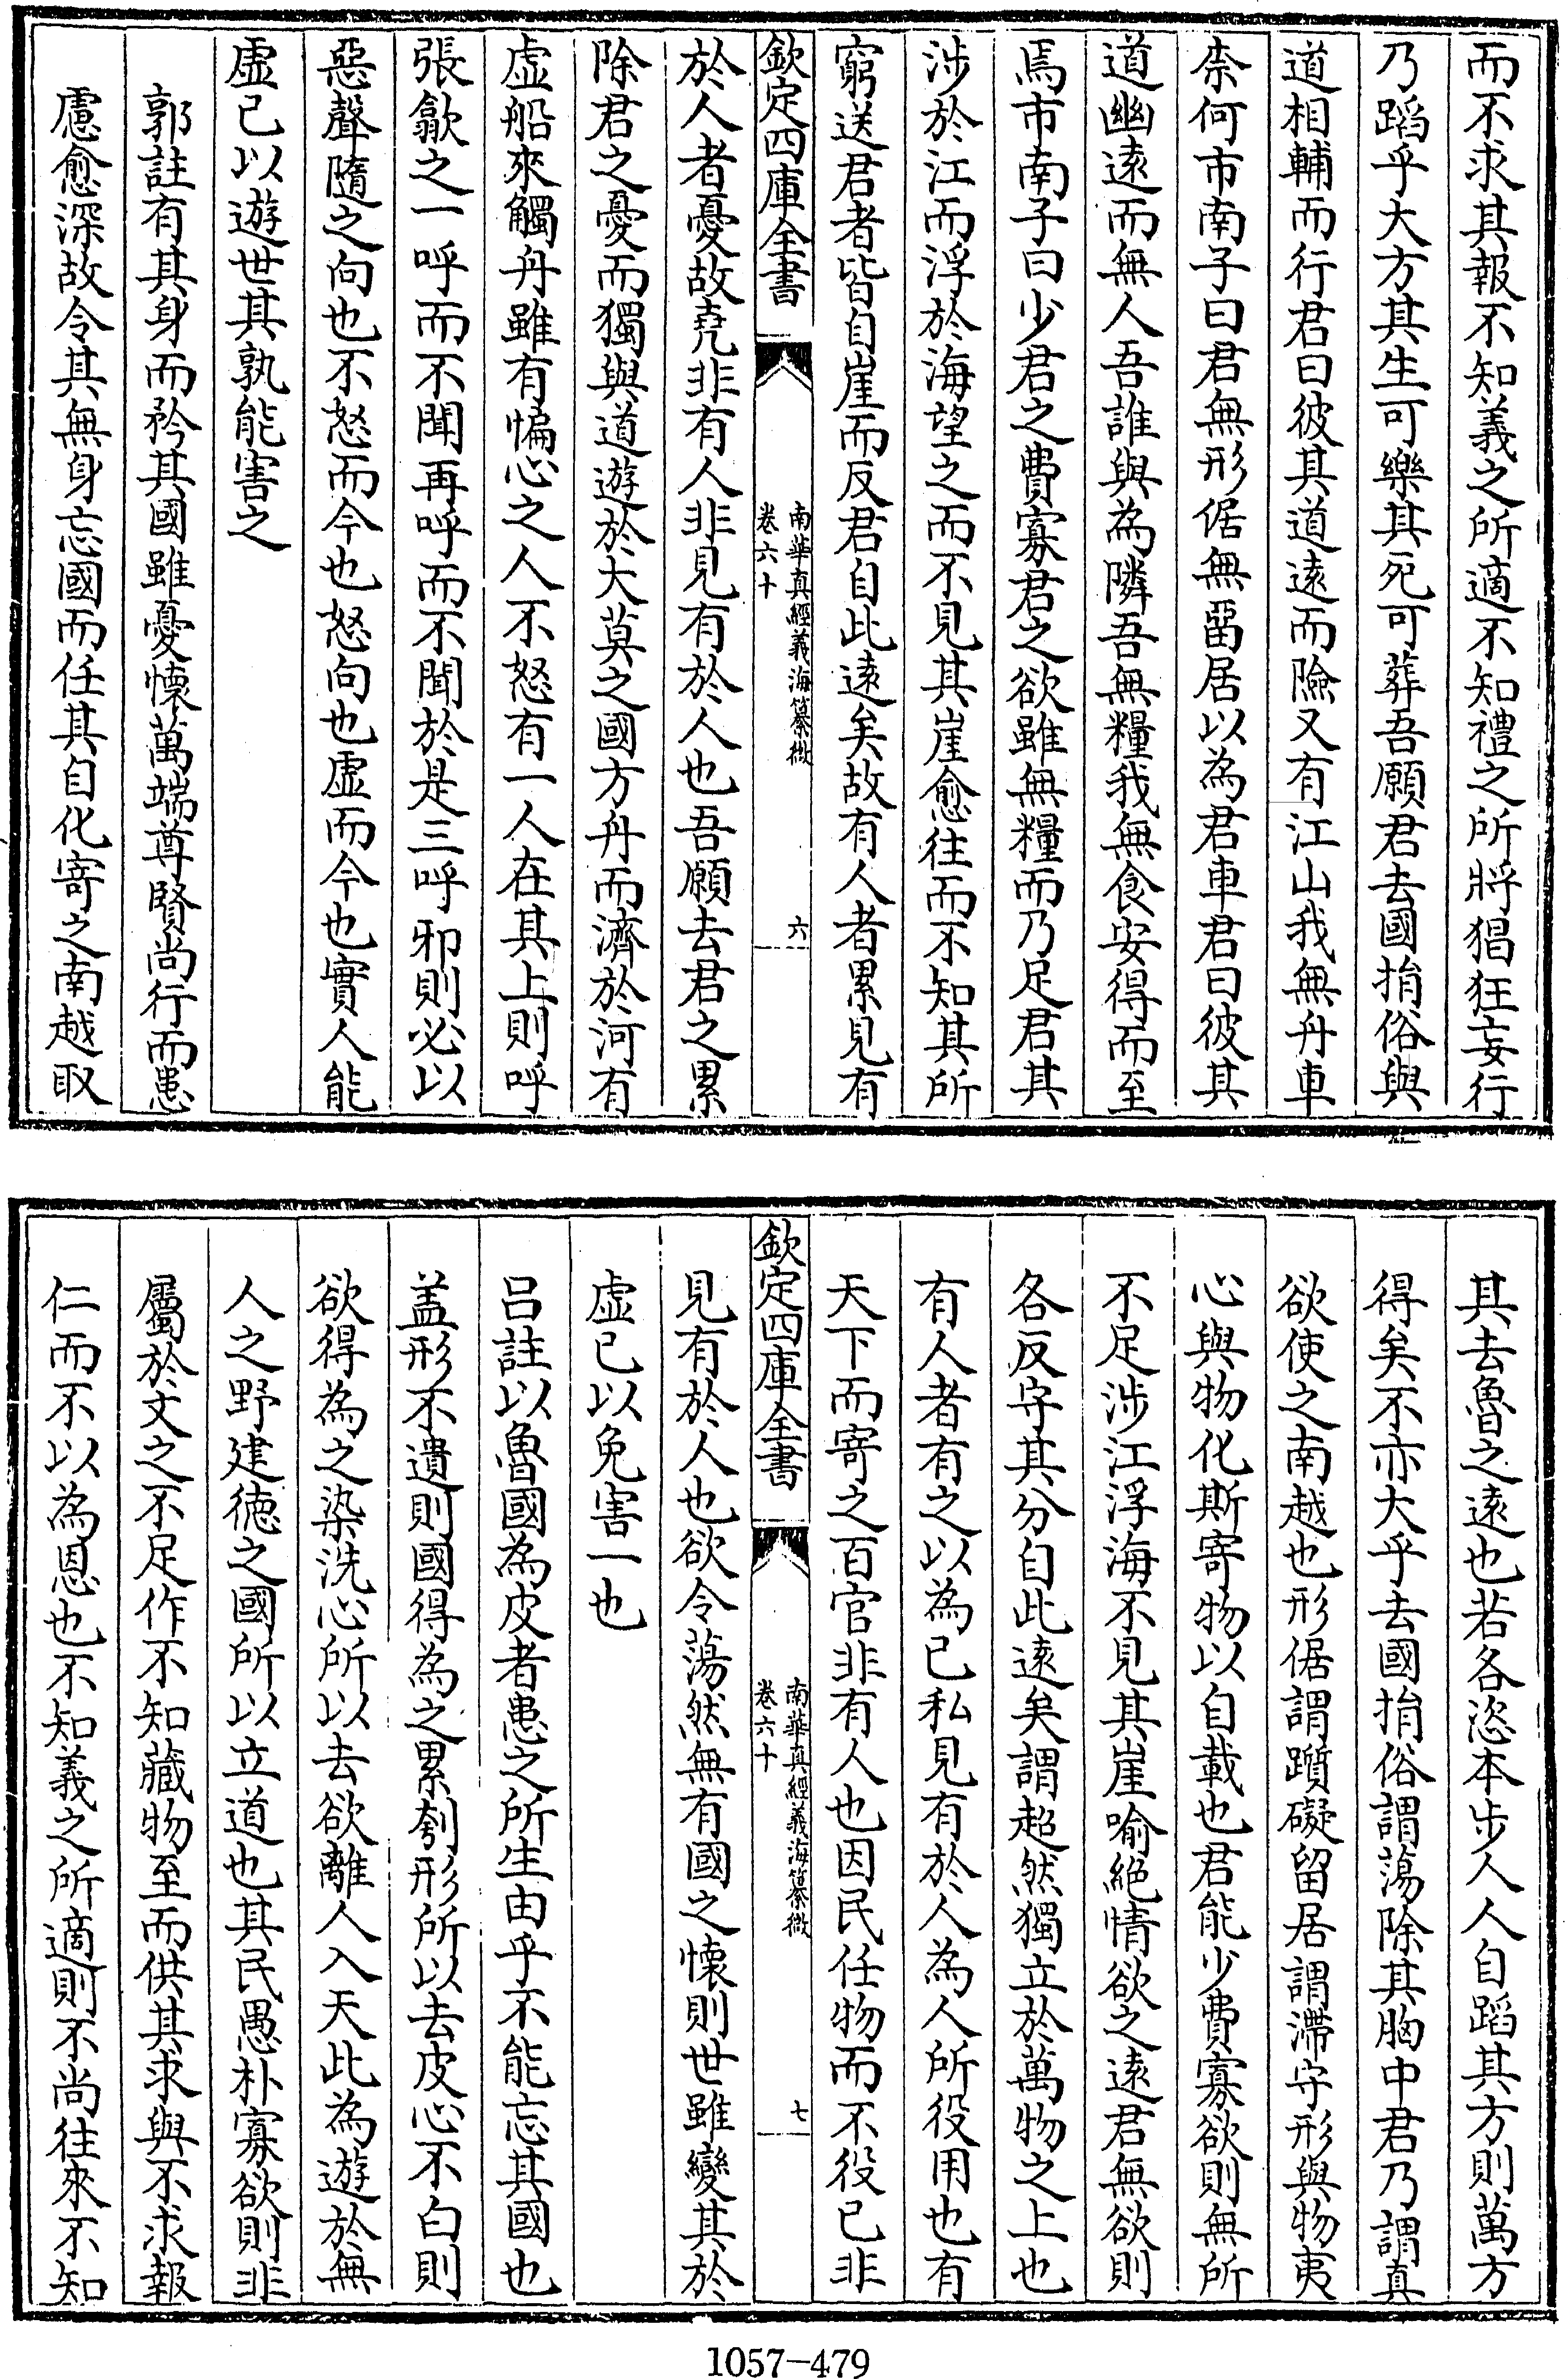 而不求其報不知義之所適不知禮之所將猖狂妄行
乃蹈乎大方其生可樂其死可葬吾願君去國捐俗與
道相輔而行君曰彼其道遠而險又有江山我無舟車
柰何市南子曰君無形倨無留居以為君車君曰彼其
道幽遠而無人吾誰與為隣吾無糧我無食安得而至
焉市南子曰少君之費寡君之欲雖無糧而乃足君其
涉於江而浮於海望之而不見其崖愈往而不知其所
窮送君者皆自崖而反君自此遠矣故有人者累見有
欽定四庫全書
南華真經義海纂微
卷六十
六
於人者憂故堯非有人非見有於人也吾願去君之累
除君之憂而獨與道遊於大莫之國方舟而濟於河有
虛船來觸舟雖有惼心之人不怒有一人在其上則呼
張歙之一呼而不聞再呼而不聞於是三呼邪則必以
惡聲隨之向也不怒而今也怒向也虛而今也實人能
虛已以遊世其孰能害之
郭註有其身而矜其國雖憂懷萬端尊賢尚行而患
慮愈深故令其無身忘國而任其自化寄之南越取
其去魯之遠也若各恣本步人人自蹈其方則萬方
得矣不亦大乎去國捐俗謂蕩除其胸中君乃謂真
欲使之南越也形倨謂躓礙留居謂滯守形與物夷
心與物化斯寄物以自載也君能少費寡欲則無所
不足涉江浮海不見其崖喻絕情欲之遠君無欲則
各反守其分自此遠矣謂超然獨立於萬物之上也
有人者有之以為已私見有於人為人所役用也有
天下而寄之百官非有人也因民任物而不役已非
欽定四庫全書
南華真經義海纂微
卷六十
七
見有於人也欲令蕩然無有國之懷則世雖變其於
虛已以免害一也
呂註以魯國為皮者患之所生由乎不能忘其國也
盖形不遺則國得為之累刳形所以去皮心不白則
欲得為之染洗心所以去欲離人入天此為遊於無
人之野建德之國所以立道也其民愚朴寡欲則非
屬於文之不足作不知藏物至而供其求與不求報
仁而不以為恩也不知義之所適則不尚往來不知
1057-479